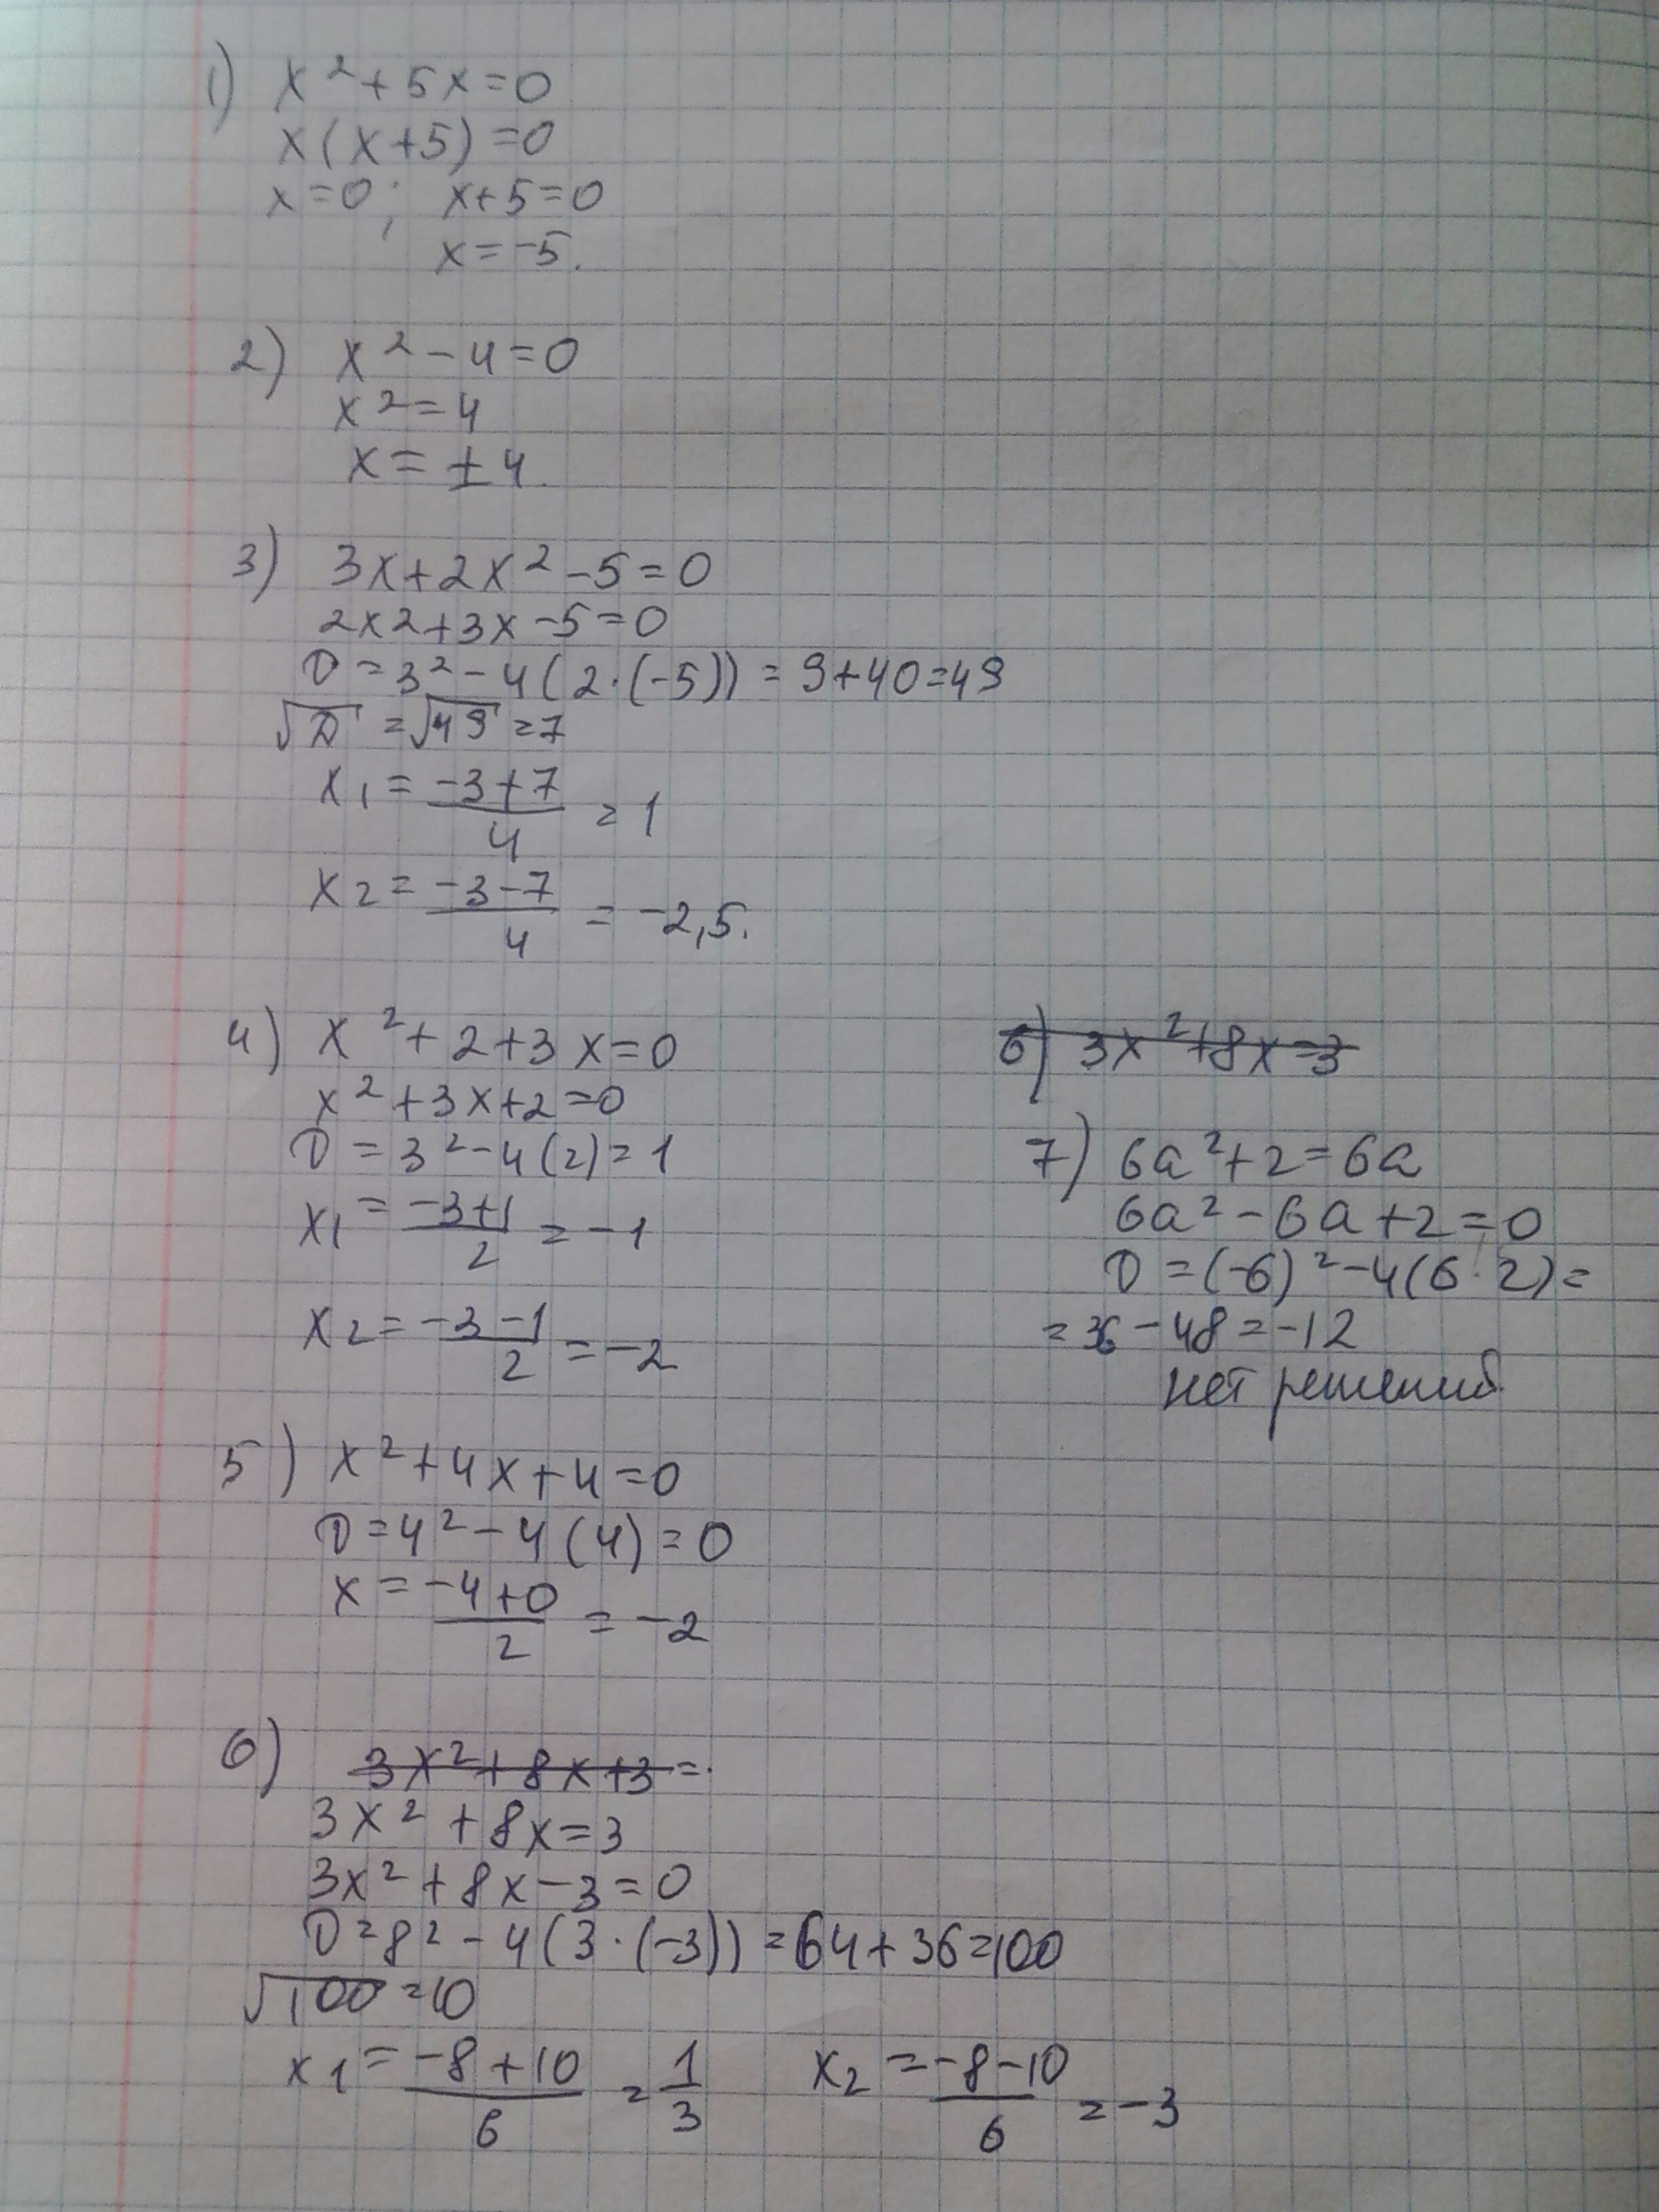 1) x² + 5x = 0
x(x+5) = 0
x = 0; x+5=0
x = -5.
2) x² - 4 = 0
x² = 4
x = ±4.
3) 3x + 2x² - 5 = 0
2x2 + 3x - 5 = 0
D = 3² - 4(2·(-5)) = 9+40=49
√D = √49 = 7
x1 = (-3+7)/4 = 1
x2 = (-3-7)/4 = -2,5.
4) x² + 2 + 3x = 0
x² + 3x + 2 = 0
D = 3² - 4(2) = 1
x1 = (-3+1)/2 = -1
x2 = (-3-1)/2 = -2
5) x² + 4x + 4 = 0
D = 4² - 4(4) = 0
x = (-4+0)/2 = -2
6) 3x² + 8x + 3 =
3x² + 8x = 3
3x² + 8x - 3 = 0
D = 8² - 4(3·(-3)) = 64+36=100
√100 = 10
x1 = (-8+10)/6 = 1/3 x2 = (-8-10)/6 = -3
6) 3x² + 8x = 3
7) 6a² + 2 = 6a
6a² - 6a + 2 = 0
D = (-6)² - 4(6·2) =
= 36 - 48 = -12
нет решений.